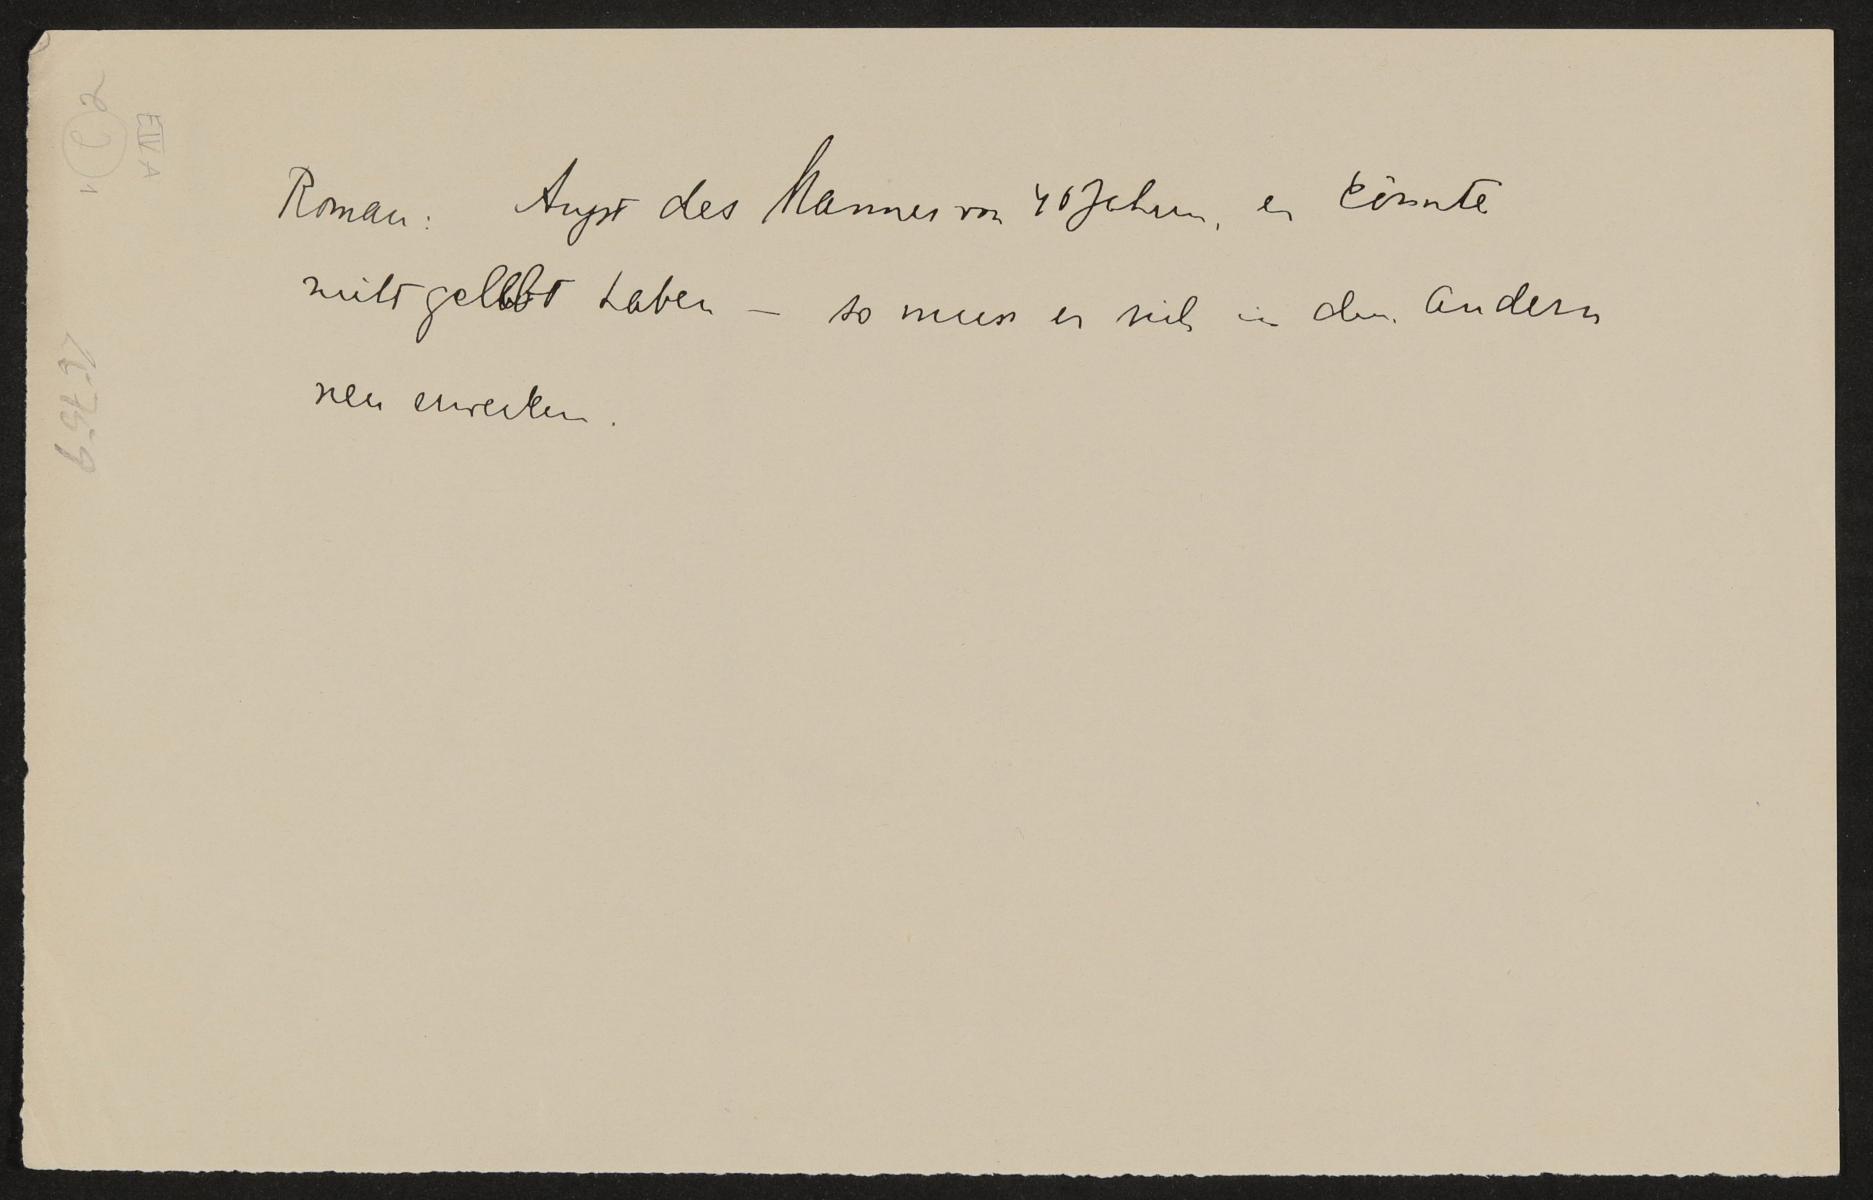 Roman: Angst des Mannes von 40 Jahren, er könnte
nicht gelebt haben – so muss er sich in den Andern
neu erwecken.
E IV A
2
1